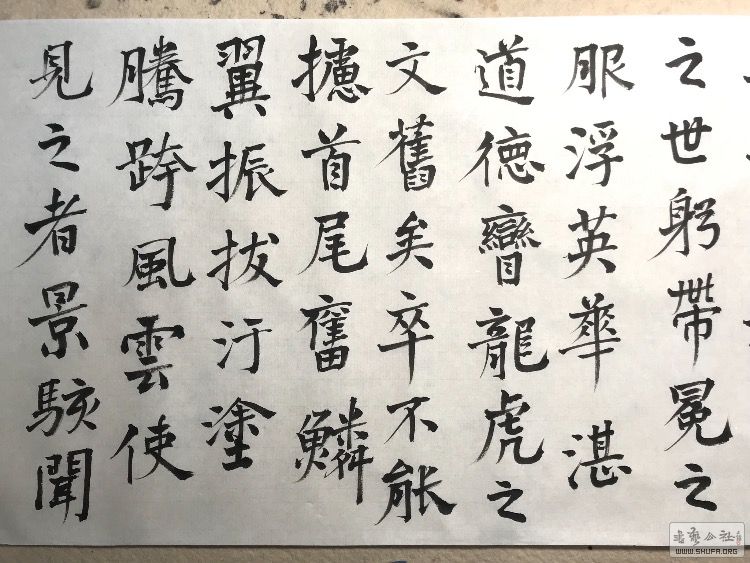 之世躬帶冕之
服浮英華湛
道德矕龍虎之
文舊矣卒不能
攄首尾奮鱗
翼振拔汙塗
騰跨風雲使
見之者景駭聞
書藝公社
WWW.SHUFA.ORG